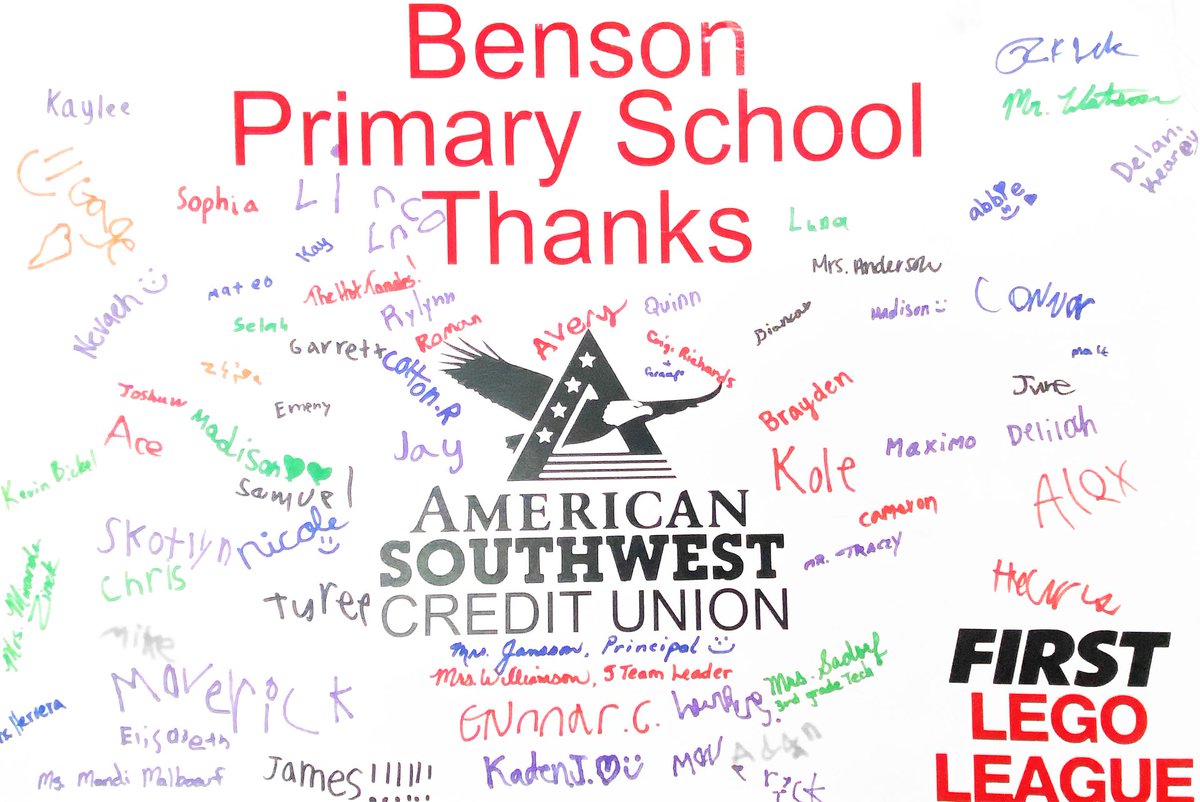 Benson
Primary School
Thanks
Kaylee
Mr. Watson
Delani
Kearey
Gage
Sophia
Linco
Lnco
abbie
Luna
Kay
Mrs. Anderson
Nevaeh
mateo
The Hot Tamales!
Rylynn
Avery
Quinn
Madison
Connor
Selah
Roman
Craig Richards
Bianca
Garrett
Colton.R
malt
Joshuw
Emery
Brayden
June
Ace
Madison
Jay
Kole
Maximo
Delilah
Kevin Bickel
Samuel
Alex
AMERICAN
SOUTHWEST
CREDIT UNION
cameron
MR. TRACZY
Skotlyn
nicole
Chris
Tyree
Mike
Mrs. Jansson, Principal
Mrs. Williamson, 5 Team Leader
Mrs. Sadorf
3rd grade Tech
Maverick
Enmar.C.
Elisabeth
Ms. Mandi Malboeuf
James!!!!!!
Kaden J.
Adan
FIRST
LEGO
LEAGUE